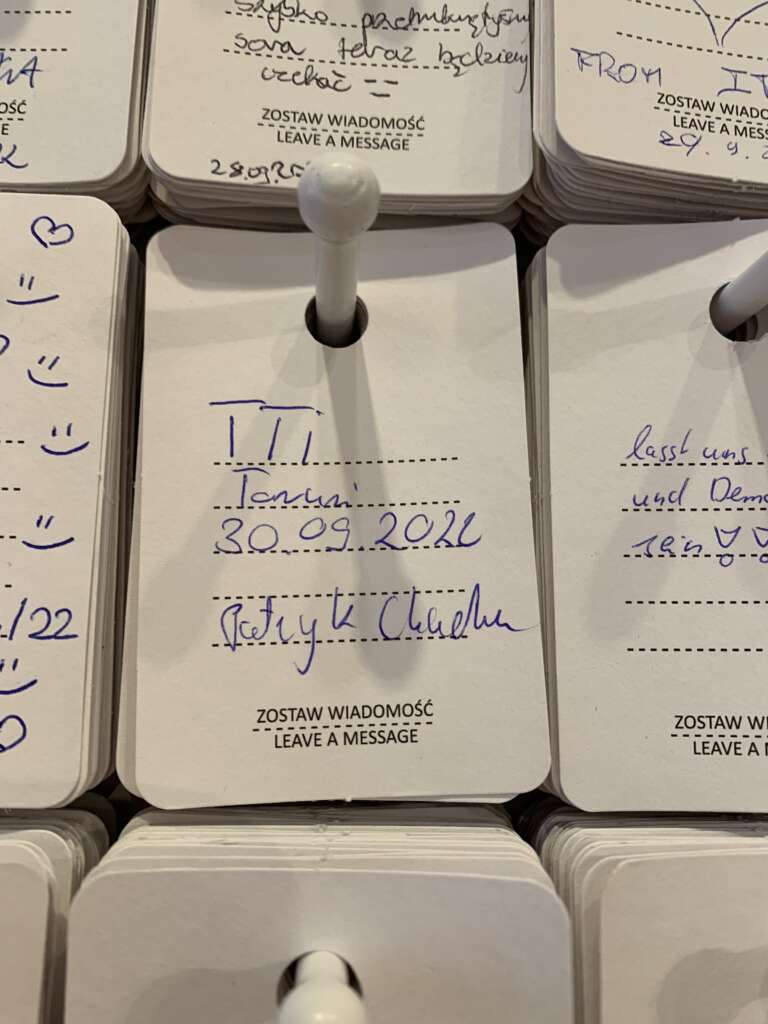 szybko
sora teraz będziemy
czekać =
ZOSTAW WIADOMOŚĆ
LEAVE A MESSAGE
28.09.20
FROM
ZOSTAW WIADO
LEAVE A MESS
29.9.2
/22
TTi
30.09.2022
Patryk
ZOSTAW WIADOMOŚĆ
LEAVE A MESSAGE
lasst uns
und Demo
sein !!
ZOSTAW WI
LEAVE A